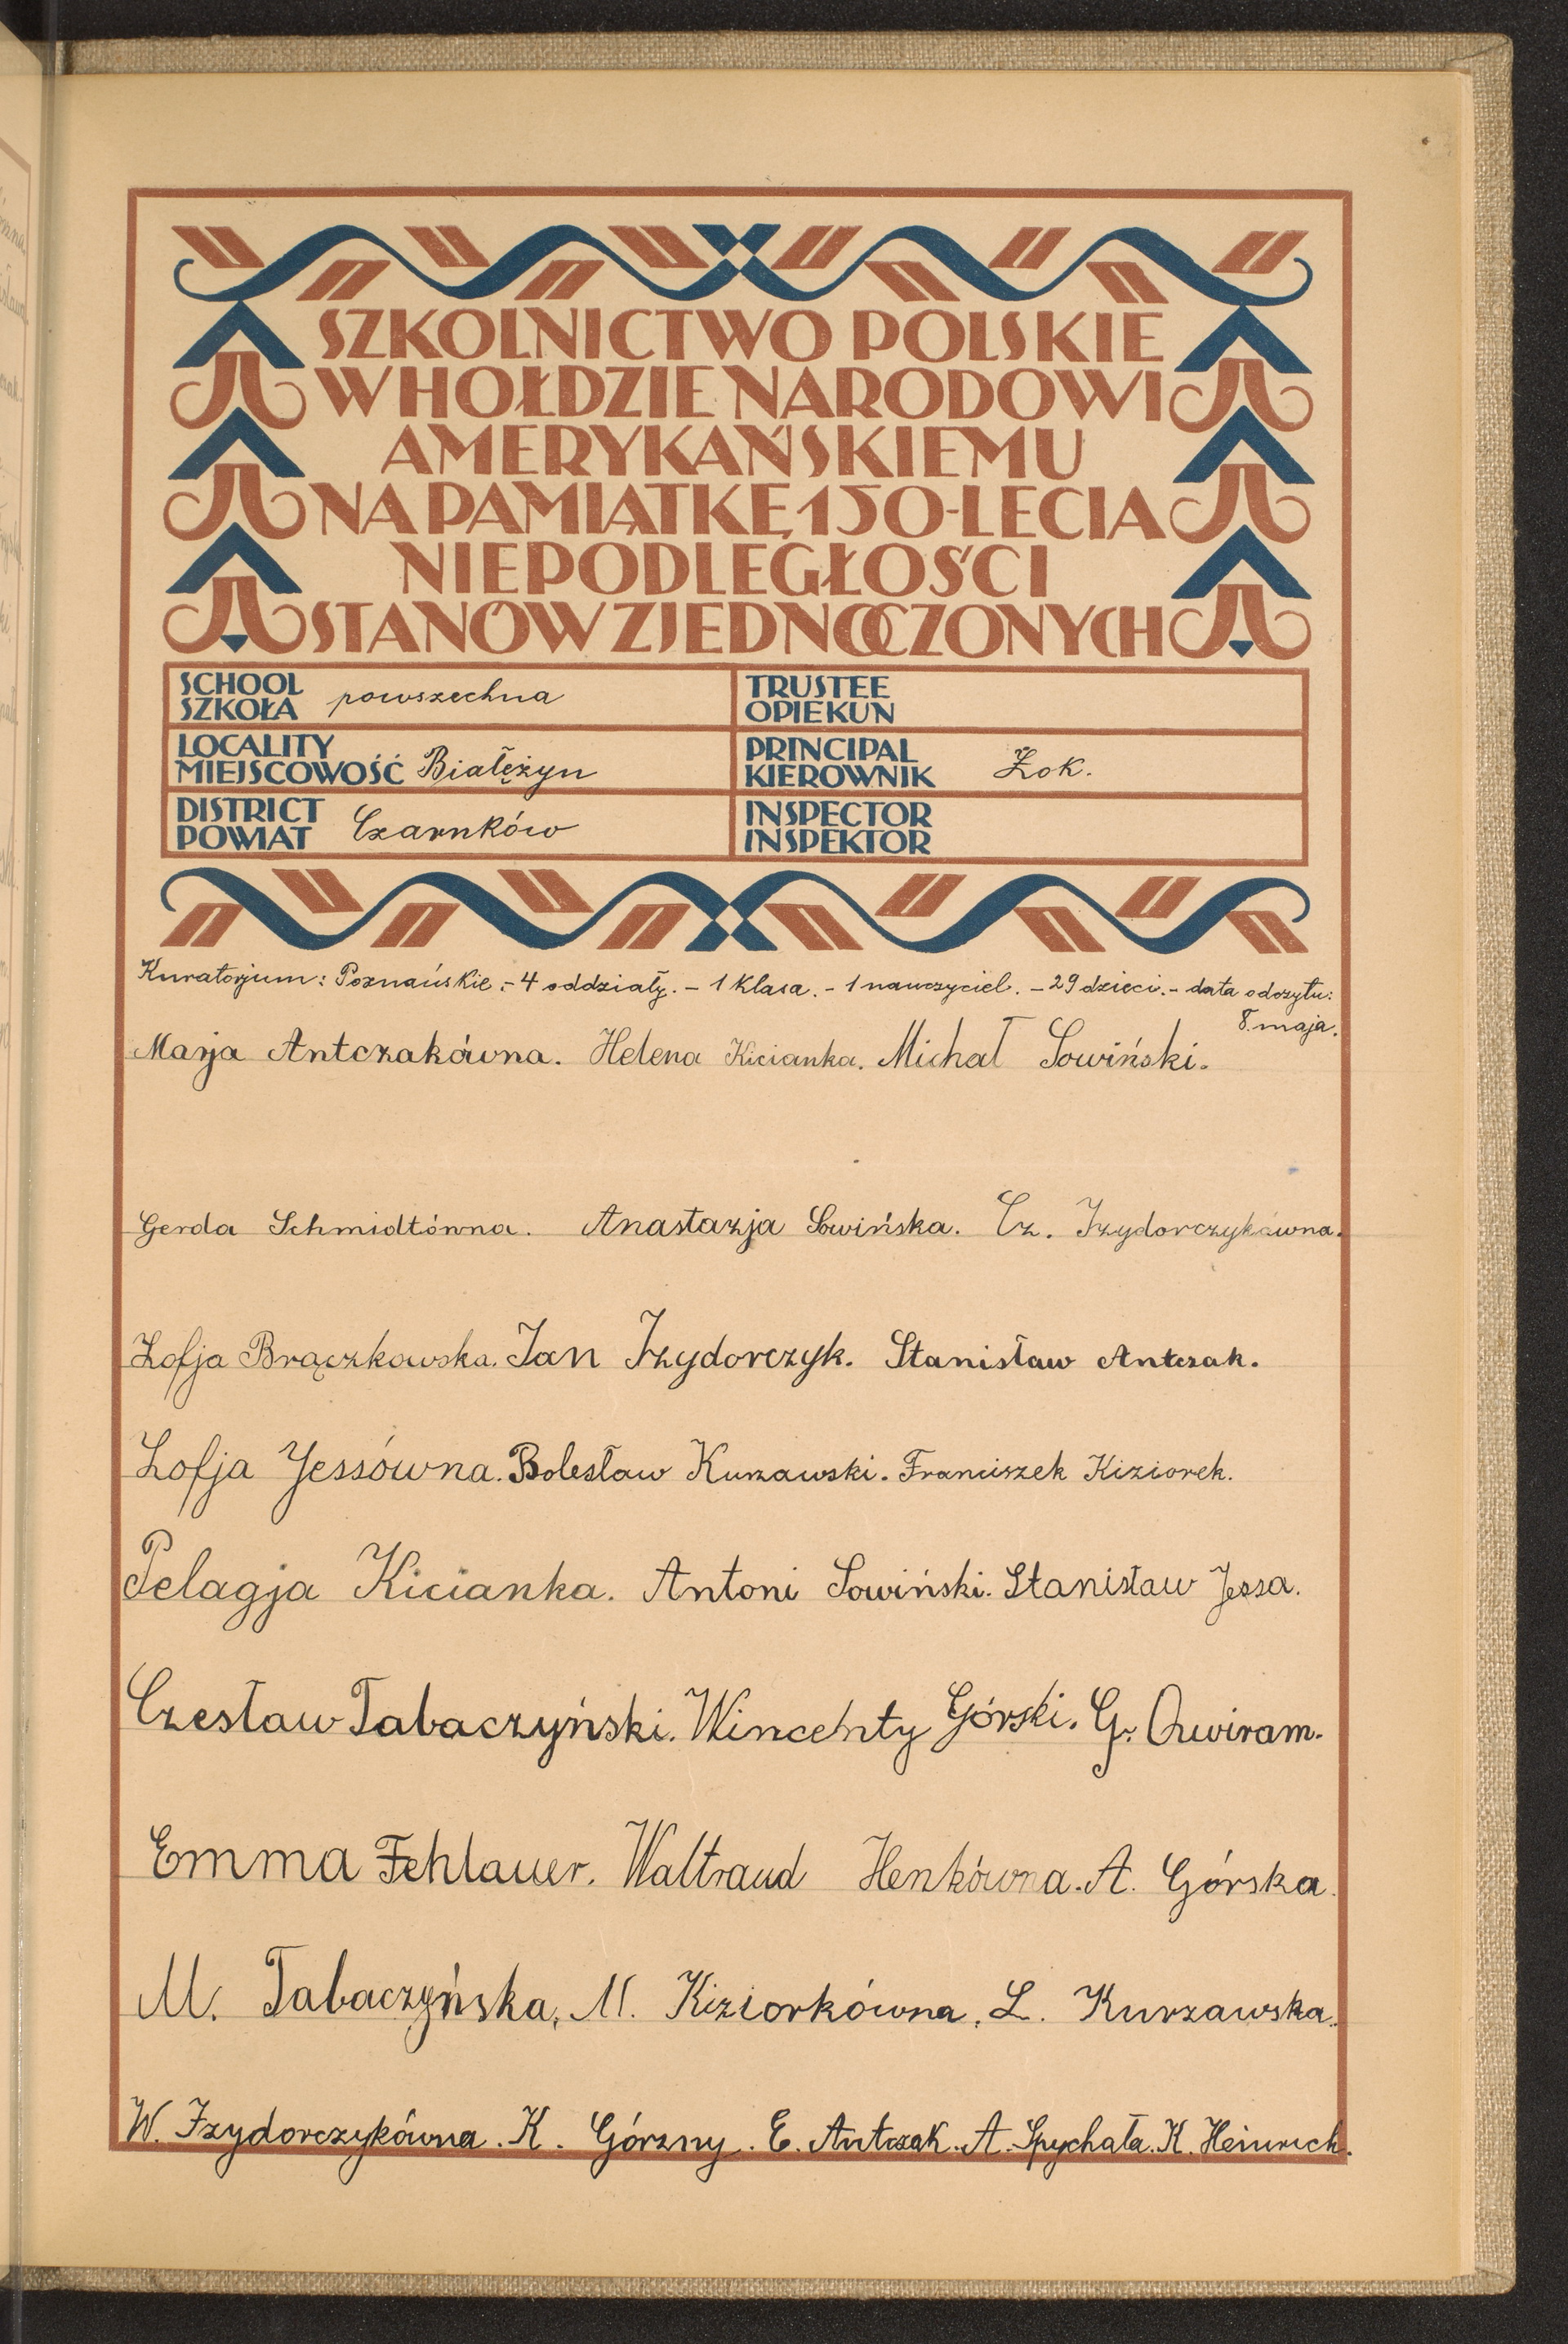 SZKOLNICTWO POLSKIE
W HOŁDZIE NARODOWI
AMERYKAŃSKIEMU
NA PAMIĄTKĘ 150-LECIA
NIEPODLEGŁOŚCI
STANÓW ZJEDNOCZONYCH
SCHOOL
SZKOŁA powszechna
TRUSTEE
OPIEKUN
LOCALITY
MIEJSCOWOŚĆ Białężyn
PRINCIPAL
KIEROWNIK Żok.
DISTRICT
POWIAT Czarnków
INSPECTOR
INSPEKTOR
Kuratorjum: Poznańskie.- 4 oddziały. - 1 klasa. - 1 nauczyciel. - 29 dzieci. - data odczytu:
8. maja.
Marja Antczakówna. Helena Kicianka. Michał Sowiński.
Gerda Schmidtówna. Anastazja Sowińska. Cz. Izydorczykówna.
Zofja Brączkowska. Jan Izydorczyk. Stanisław Antczak.
Zofja Jessówna. Bolesław Kurzawski. Franciszek Kiziorek.
Pelagja Kicianka. Antoni Sowiński. Stanisław Jessa.
Czesław Tabaczyński. Wincenty Górski. G.
Emma Fehlauer. Waltraud Henkówna. A. Górska.
M. Tabaczyńska, M. Kiziorkówna, L. Kurzawska.
W. Izydorczykówna. K. Górzny. E. Antczak. A. Spychała. K. Heinrich.